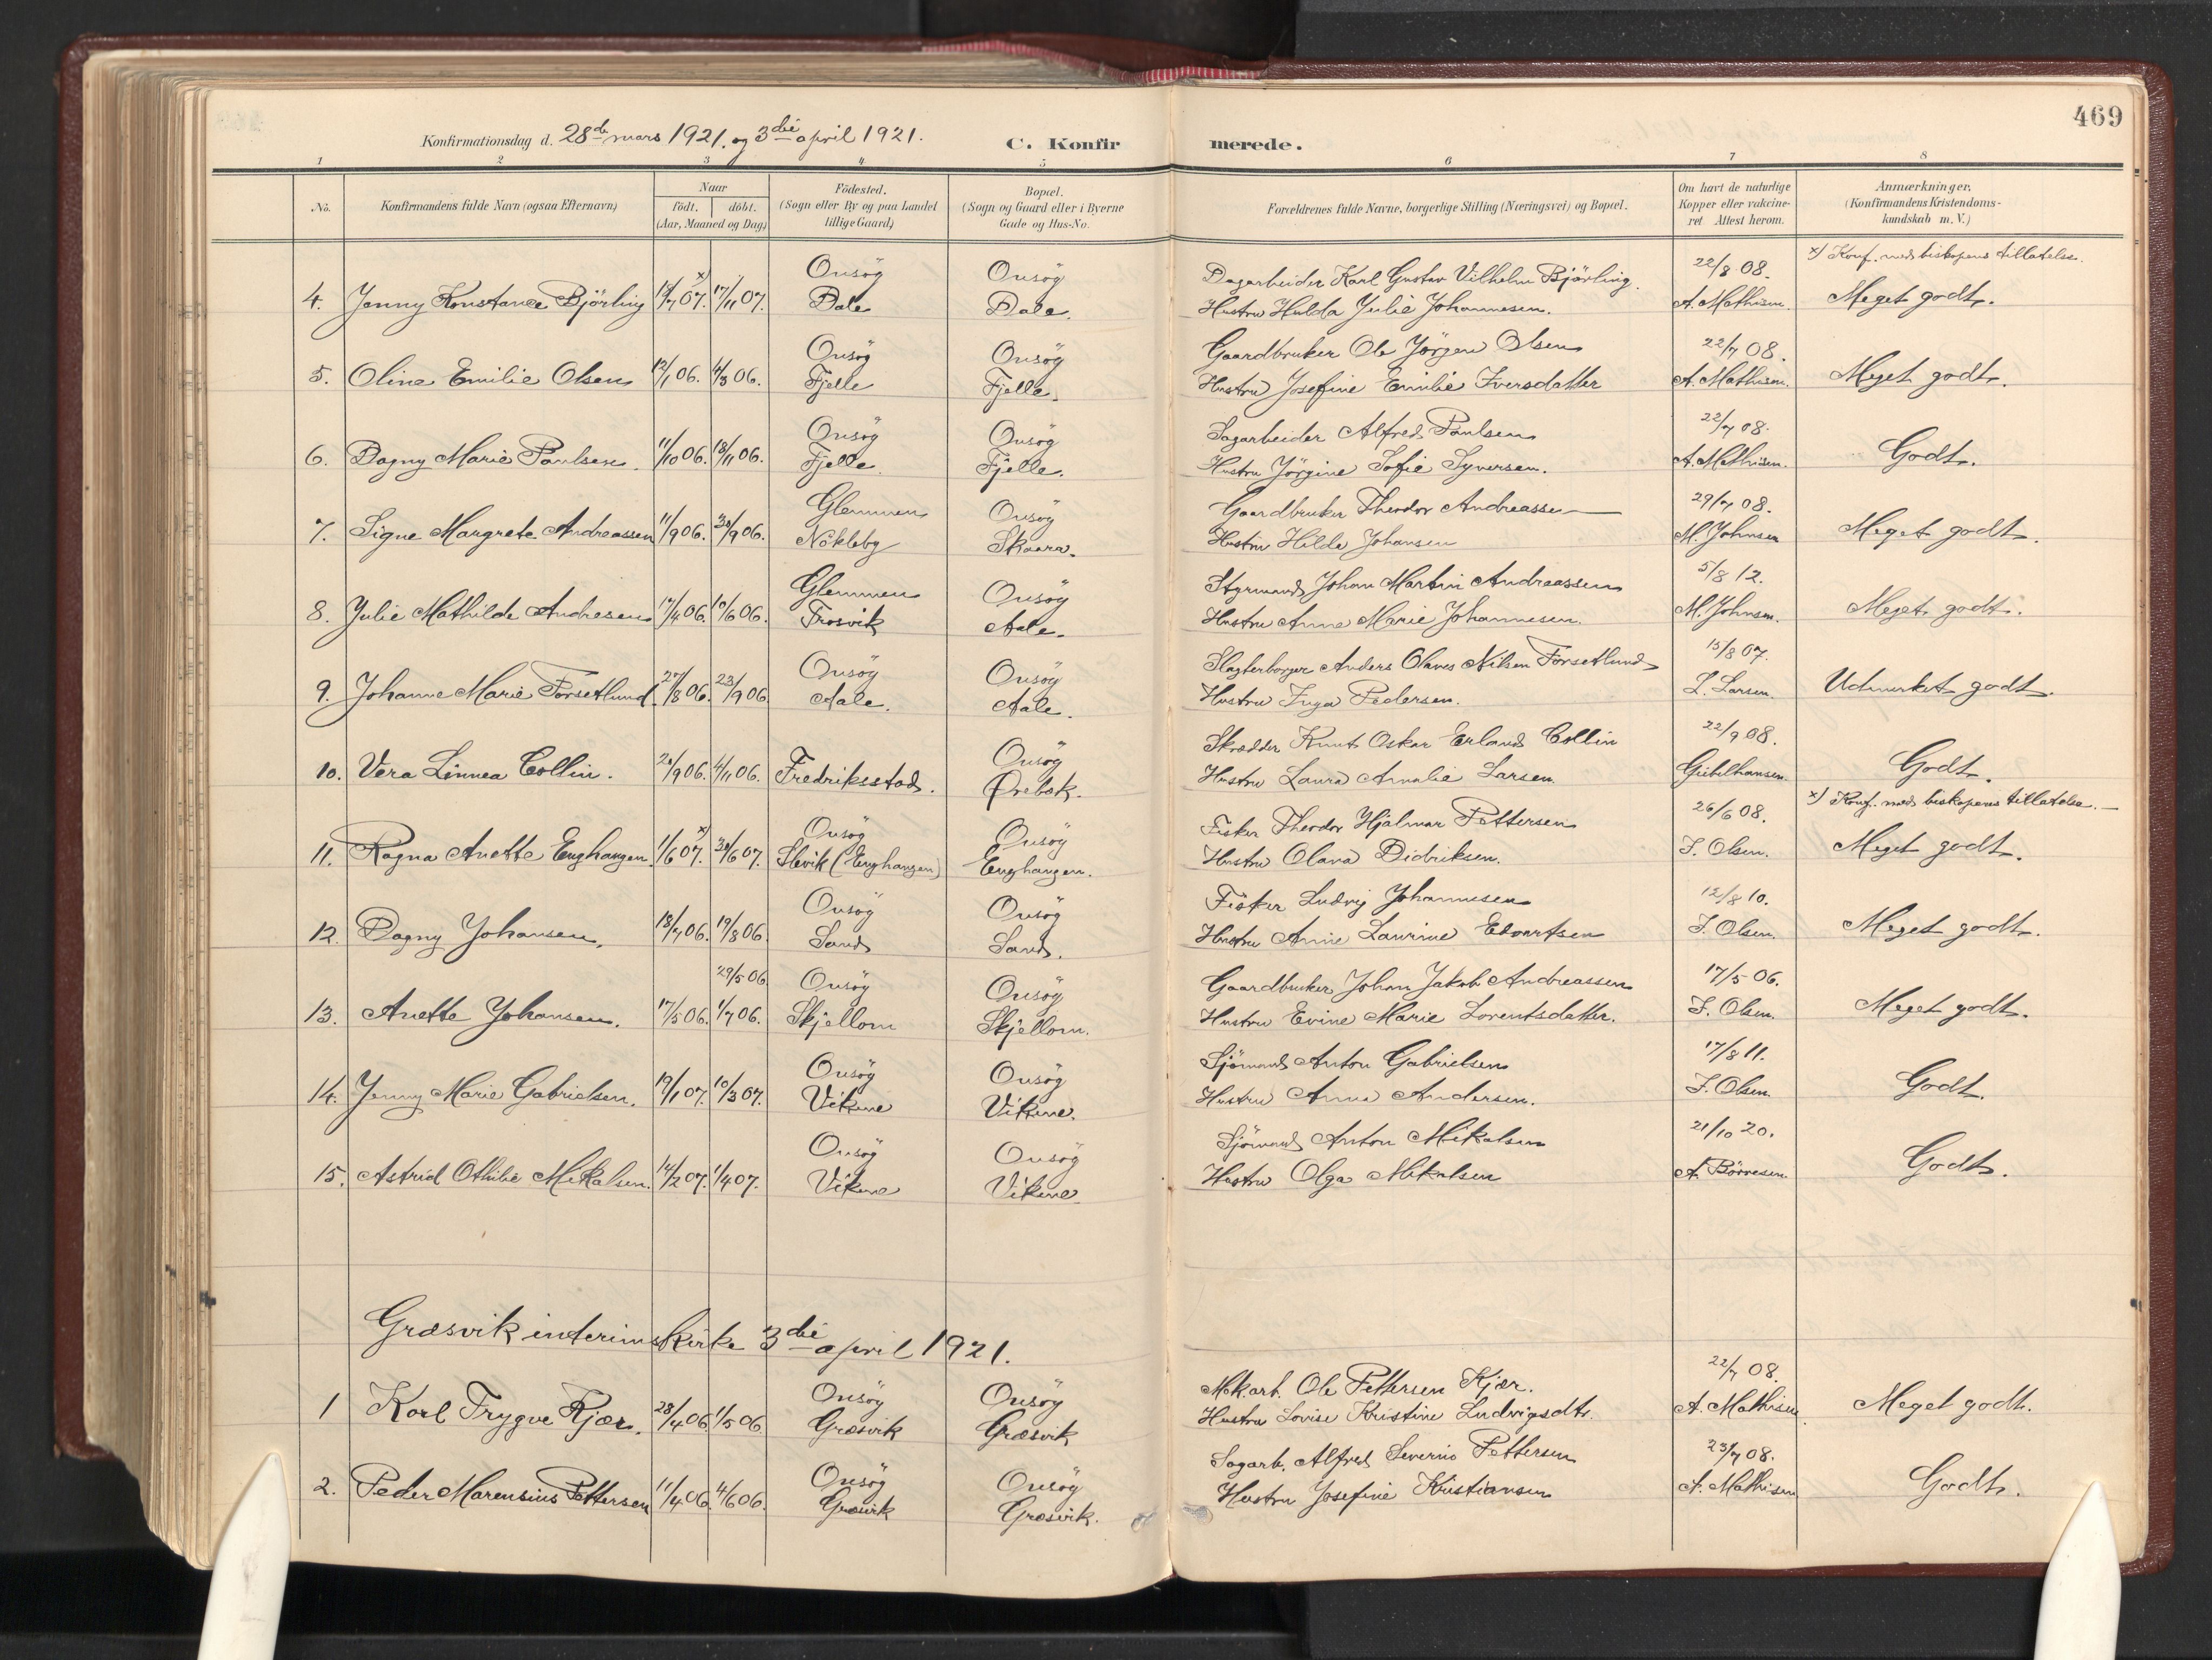 469
Konfirmationsdag d. 28de mars 1921. og 3die april 1921. C. Konfirmerede.
1 2 3 4 5 6 7 8
No. Konfirmandens fulde Navn (ogsaa Efternavn) Naar født. døbt. (Aar, Maaned og Dag) Födested. (Sogn eller By og paa Landet tillige Gaard) Bopæl. (Sogn og Gaard eller i Byerne Gade og Hus-No. Forældrenes fulde Navne, borgerlige Stilling (Næringsvei) og Bopæl. Om havt de naturlige Kopper eller vakcineret Attest herom. Anmærkninger. (Konfirmandens Kristendomskundskab m.V.)
Onsöy Onsöy Dagarbeider Karl Gustav Vilhelm Björling. 22/8 08. x) Konf. med biskopens tillatelse.
4. Jenny Konstance Björling 07. x) 17/11 07. Dale Dale. Hustru Hulda Julie Johannesen. A. Mathisen. Meget godt.
Onsöy Onsöy Gaardbruker Ole Jörgen Olsen 22/7 08.
5. Oline Emilie Olsen 12/1 06. 4/3 06. Fjelle Fjelle. Hustru Josefine Emilie Iversdatter A. Mathisen. Meget godt.
Onsöy Onsöy Sagarbeider Alfred Paulsen 22/7 08.
6. Dagny Marie Paulsen. 11/10 06. 18/11 06. Fjelle. Fjelle. Hustru Jörgine Sofie Syversen. A. Mathisen. Godt.
Glemmen Onsöy Gaardbruker Theodor Andreassen 29/7 08.
7. Signe Margrete Andreassen 11/9 06. 30/9 06. Nökleby Skaara. Hustru Hilda Johansen M. Johnsen Meget godt.
Glemmen Onsöy Styrmand Johan Martin Andreassen 5/8 12.
8. Julie Mathilde Andresen 17/4 06. 10/6 06. Trosvik Aale. Hustru Anne Marie Johannesen. M. Johnsen. Meget godt.
Onsöy Onsöy Slagterborger Anders Olaves Nilsen Forsetlund 15/8 07.
9. Johanne Marie Forsetlund. 27/8 06. 23/9 06 Aale. Aale. Hustru Inga Pedersen. L. Larsen. Udmerket godt.
Onsöy Skrædder Knut Oskar Erland Collin 22/9 08.
10. Vera Linnea Collin. 06. 4/11 06. Fredriksstad. Ørebæk. Hustru Laura Amalie Larsen Giebelhausen. Godt.
Onsöy Onsöy Fisker Theodor Hjalmar Pettersen 26/6 08. x) Konf. med biskopens tillatelse.
11. Ragna Anette Enghaugen. 1/6 07. x) 30/6 07. Slevik (Enghaugen) Enghaugen. Hustru Olava Didriksen. J. Olsen. Meget godt.
Onsöy Onsöy Fisker Ludvig Johannesen 12/8 10.
12. Dagny Johansen. 18/7 06. 19/8 06. Sand Sand. Hustru Anne Laurine Edvartsen J. Olsen. Meget godt.
29/5 06 Onsöy Onsöy Gaardbruker Johan Jakob Andreassen 17/5 06.
13. Anette Johansen. 17/5 06. 1/7 06. Skjellom Skjellom. Hustru Evine Marie Lorentsdatter. J. Olsen. Meget godt.
Onsöy Onsöy Sjömand Anton Gabrielsen 17/8 11.
14. Jenny Marie Gabrielsen. 19/1 07. 10/3 07. Vikene Vikene. Hustru Anna Andersen. J. Olsen. Godt.
Onsöy Onsöy Sjömand Anton Mikalsen 21/10 20.
15. Astrid Othilie Mikalsen. 14/2 07. 1/4 07. Vikene Vikene Hustru Olga Mikalsen A. Börresen. Godt.
Græsvik interimskirke 3die april 1921.
Onsöy Onsöy Mek.arb. Ole Pettersen Kjær. 22/7 08.
1 Karl Trygve Kjær. 28/4 06. 1/5 06. Græsvik Græsvik Hustru Lovise Kristine Ludvigsdtr. A. Mathisen Meget godt.
Onsöy Onsöy Sagarb. Alfred Severin Pettersen 23/7 08.
2. Peder Marensius Pettersen 11/4 06. 4/6 06. Græsvik Græsvik. Hustru Josefine Kristiansen A. Mathisen Godt.